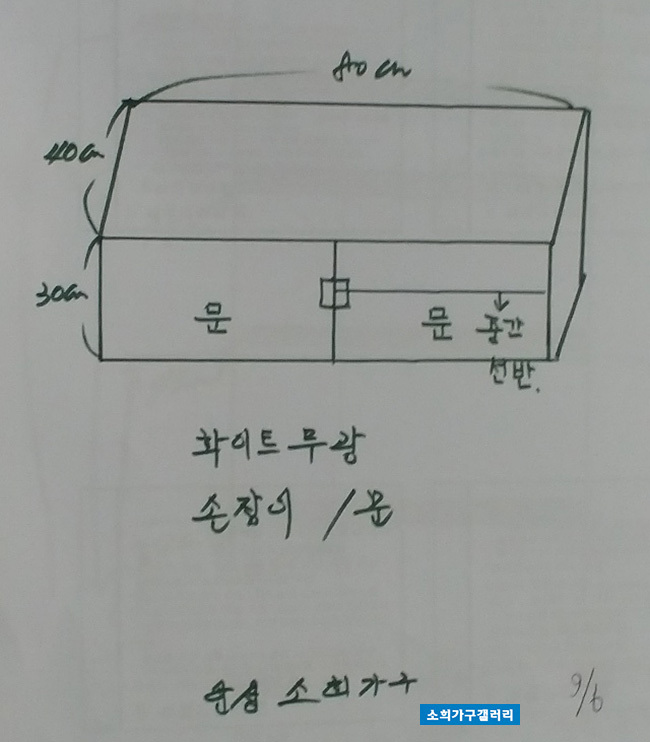 80cm
40cm
30cm
문
문 중간
선반.
화이트무광
손잡이 / 문
소희가구
소희가구갤러리
9/6